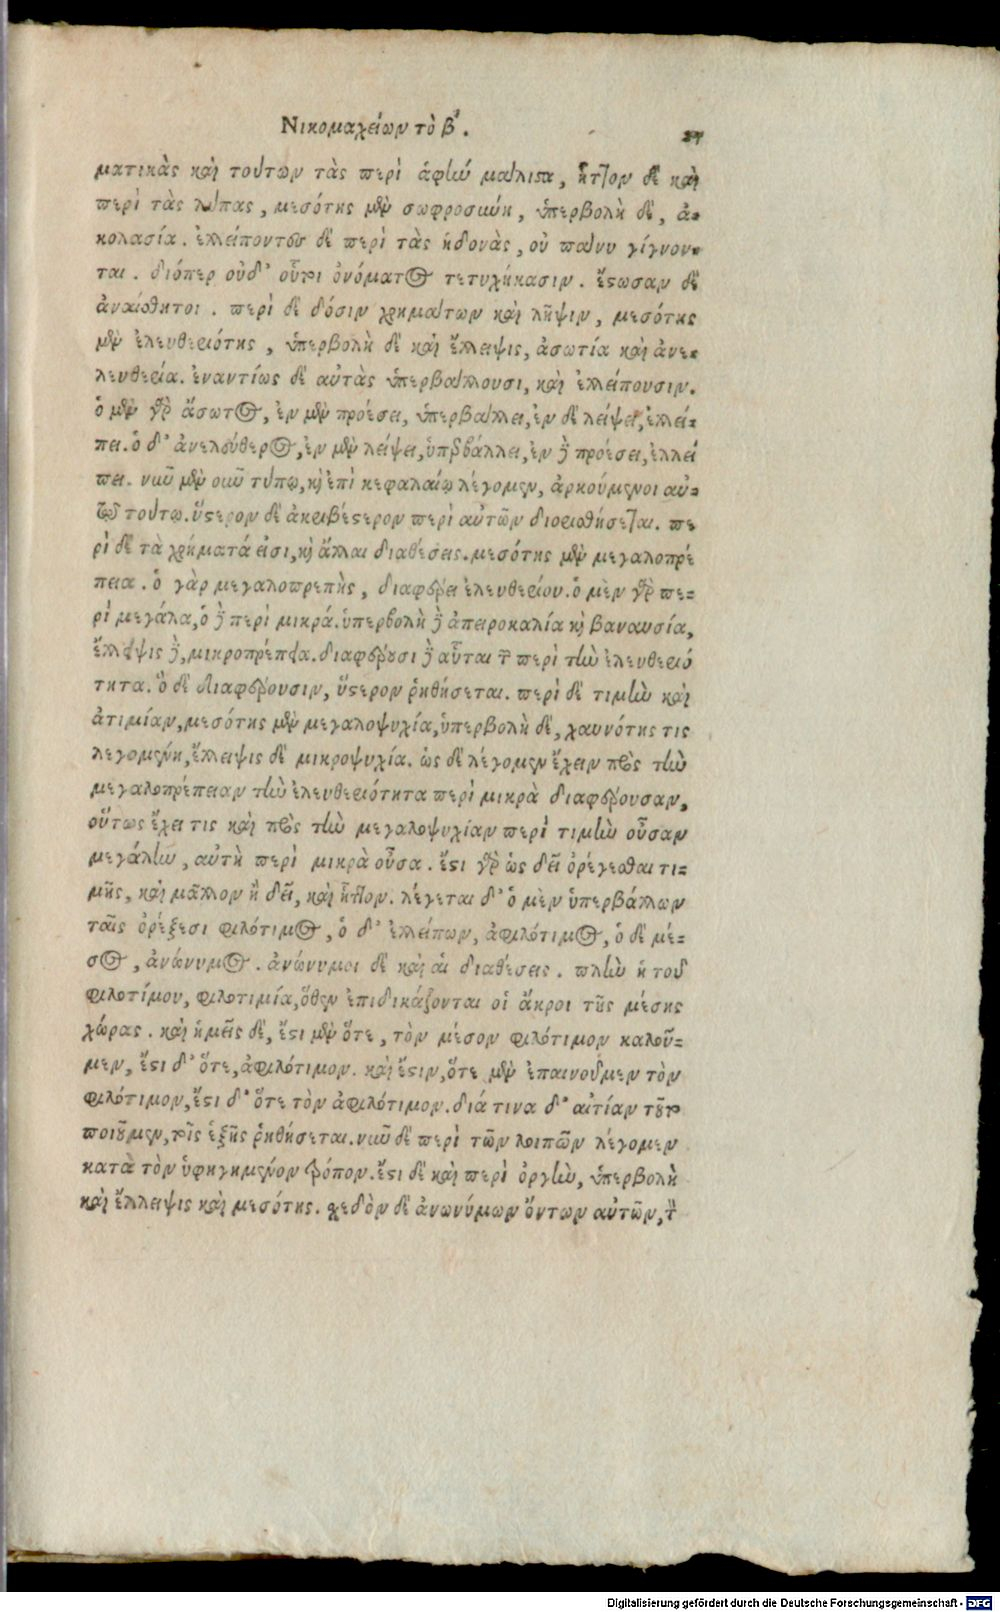 Νικομαχείων τὸ β΄.
ματικὰς καὶ τούτων τὰς περὶ ἁφὴν μάλιστα, ἧττον δὲ καὶ
περὶ τὰς λύπας, μεσότης μὲν σωφροσύνη, ὑπερβολὴ δὲ, ἀ-
κολασία. ἐλλείποντες δὲ περὶ τὰς ἡδονὰς, οὐ πάνυ γίγνον-
ται. διόπερ οὐδ' οὗτοι ὀνόματος τετυχήκασιν. ἔστωσαν δὲ
ἀναίσθητοι. περὶ δὲ δόσιν χρημάτων καὶ λῆψιν, μεσότης
μὲν ἐλευθεριότης, ὑπερβολὴ δὲ καὶ ἔλλειψις, ἀσωτία καὶ ἀνε-
λευθερία. ἐναντίως δὲ αὐτὰς ὑπερβάλλουσι, καὶ ἐλλείπουσιν.
ὁ μὲν γὰρ ἄσωτος, ἐν μὲν προέσει, ὑπερβάλλει, ἐν δὲ λείψει, ἐλλεί-
πει. ὁ δ' ἀνελεύθερος, ἐν μὲν λείψει, ὑπερβάλλει, ἐν δὲ προέσει, ἐλλεί
πει. νῦν μὲν οὖν τύπῳ, καὶ ἐπὶ κεφαλαίῳ λέγομεν, ἀρκούμενοι αὐ-
τῷ τούτῳ. ὕστερον δὲ ἀκριβέστερον περὶ αὐτῶν διορισθήσεται. πε
ρὶ δὲ τὰ χρήματά εἰσι, καὶ ἄλλαι διαθέσεις. μεσότης μὲν μεγαλοπρέ
πεια. ὁ γὰρ μεγαλοπρεπὴς, διαφέρει ἐλευθερίου. ὁ μὲν γὰρ πε-
ρὶ μεγάλα, ὁ δὲ περὶ μικρά. ὑπερβολὴ δὲ ἀπειροκαλία καὶ βαναυσία,
ἔλλειψις δὲ, μικροπρέπεια. διαφέρουσι δὲ αὗται τῶν περὶ τὴν ἐλευθεριό
τητα. ὃ δὲ διαφέρουσιν, ὕστερον ῥηθήσεται. περὶ δὲ τιμὴν καὶ
ἀτιμίαν, μεσότης μὲν μεγαλοψυχία, ὑπερβολὴ δὲ, χαυνότης τις
λεγομένη, ἔλλειψις δὲ μικροψυχία. ὡς δὲ λέγομεν ἔχειν πρὸς τὴν
μεγαλοπρέπειαν τὴν ἐλευθεριότητα περὶ μικρὰ διαφέρουσαν,
οὕτως ἔχει τις καὶ πρὸς τὴν μεγαλοψυχίαν περὶ τιμὴν οὖσαν
μεγάλην, αὐτὴ περὶ μικρὰ οὖσα. ἔστι γὰρ ὡς δεῖ ὀρέγεσθαι τι-
μῆς, καὶ μᾶλλον ἢ δεῖ, καὶ ἧττον. λέγεται δ' ὁ μὲν ὑπερβάλλων
ταῖς ὀρέξεσι φιλότιμος, ὁ δ' ἐλλείπων, ἀφιλότιμος, ὁ δὲ μέ-
σος, ἀνώνυμος. ἀνώνυμοι δὲ καὶ αἱ διαθέσεις. πλὴν ἡ τοῦ
φιλοτίμου, φιλοτιμία, ὅθεν ἐπιδικάζονται οἱ ἄκροι τῆς μέσης
χώρας. καὶ ἡμεῖς δὲ, ἔστι μὲν ὅτε, τὸν μέσον φιλότιμον καλοῦ-
μεν, ἔστι δ' ὅτε, ἀφιλότιμον. καὶ ἔστιν, ὅτε μὲν ἐπαινοῦμεν τὸν
φιλότιμον, ἔστι δ' ὅτε τὸν ἀφιλότιμον. διά τινα δ' αἰτίαν τοῦτο
ποιοῦμεν, τοῖς ἑξῆς ῥηθήσεται. νῦν δὲ περὶ τῶν λοιπῶν λέγομεν
κατὰ τὸν ὑφηγημένον τρόπον. ἔστι δὲ καὶ περὶ ὀργὴν, ὑπερβολὴ
καὶ ἔλλειψις καὶ μεσότης. σχεδὸν δὲ ἀνωνύμων ὄντων αὐτῶν, τὸν
Digitalisierung gefördert durch die Deutsche Forschungsgemeinschaft - DFG